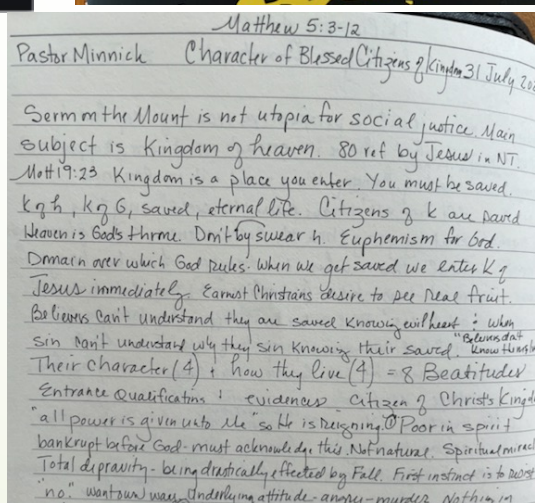 Matthew 5:3-12
Pastor Minnick Character of Blessed Citizens of kingdom 31 July
Sermon the Mount is not utopia for social justice. Main
subject is Kingdom of heaven. 80 ref by Jesus in NT.
Matt 19:23 Kingdom is a place you enter. You must be saved.
K of h, K of G, saved, eternal life. Citizens of K are saved
Heaven is God's throne. Don't by swear h. Euphemism for God.
Domain over which God rules. When we get saved we enter K of
Jesus immediately. Earnest Christians desire to see real fruit.
Believers can't understand they are saved knowing evil heart : when
sin can't understand why they sin knowing their saved. "Believers don't know things
Their character (4) : how they live (4) = 8 Beatitudes
Entrance Qualifications : evidences citizen of Christ's Kingd
"all power is given unto Me" so He is reigning. ① Poor in spirit
bankrupt before God - must acknowledge this. Not natural. Spiritual
Total depravity - being drastically effected by Fall. First instinct is to
"no." want own way. Underlying attitude - anger - murder. Nothing in